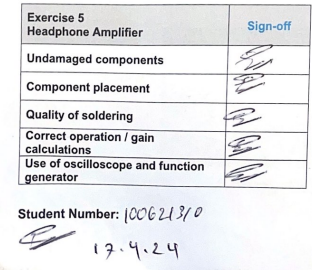 Exercise 5
Headphone Amplifier
Sign-off
Undamaged components
Component placement
Quality of soldering
Correct operation / gain
calculations
Use of oscilloscope and function
generator
Student Number: 100621310
17.4.24